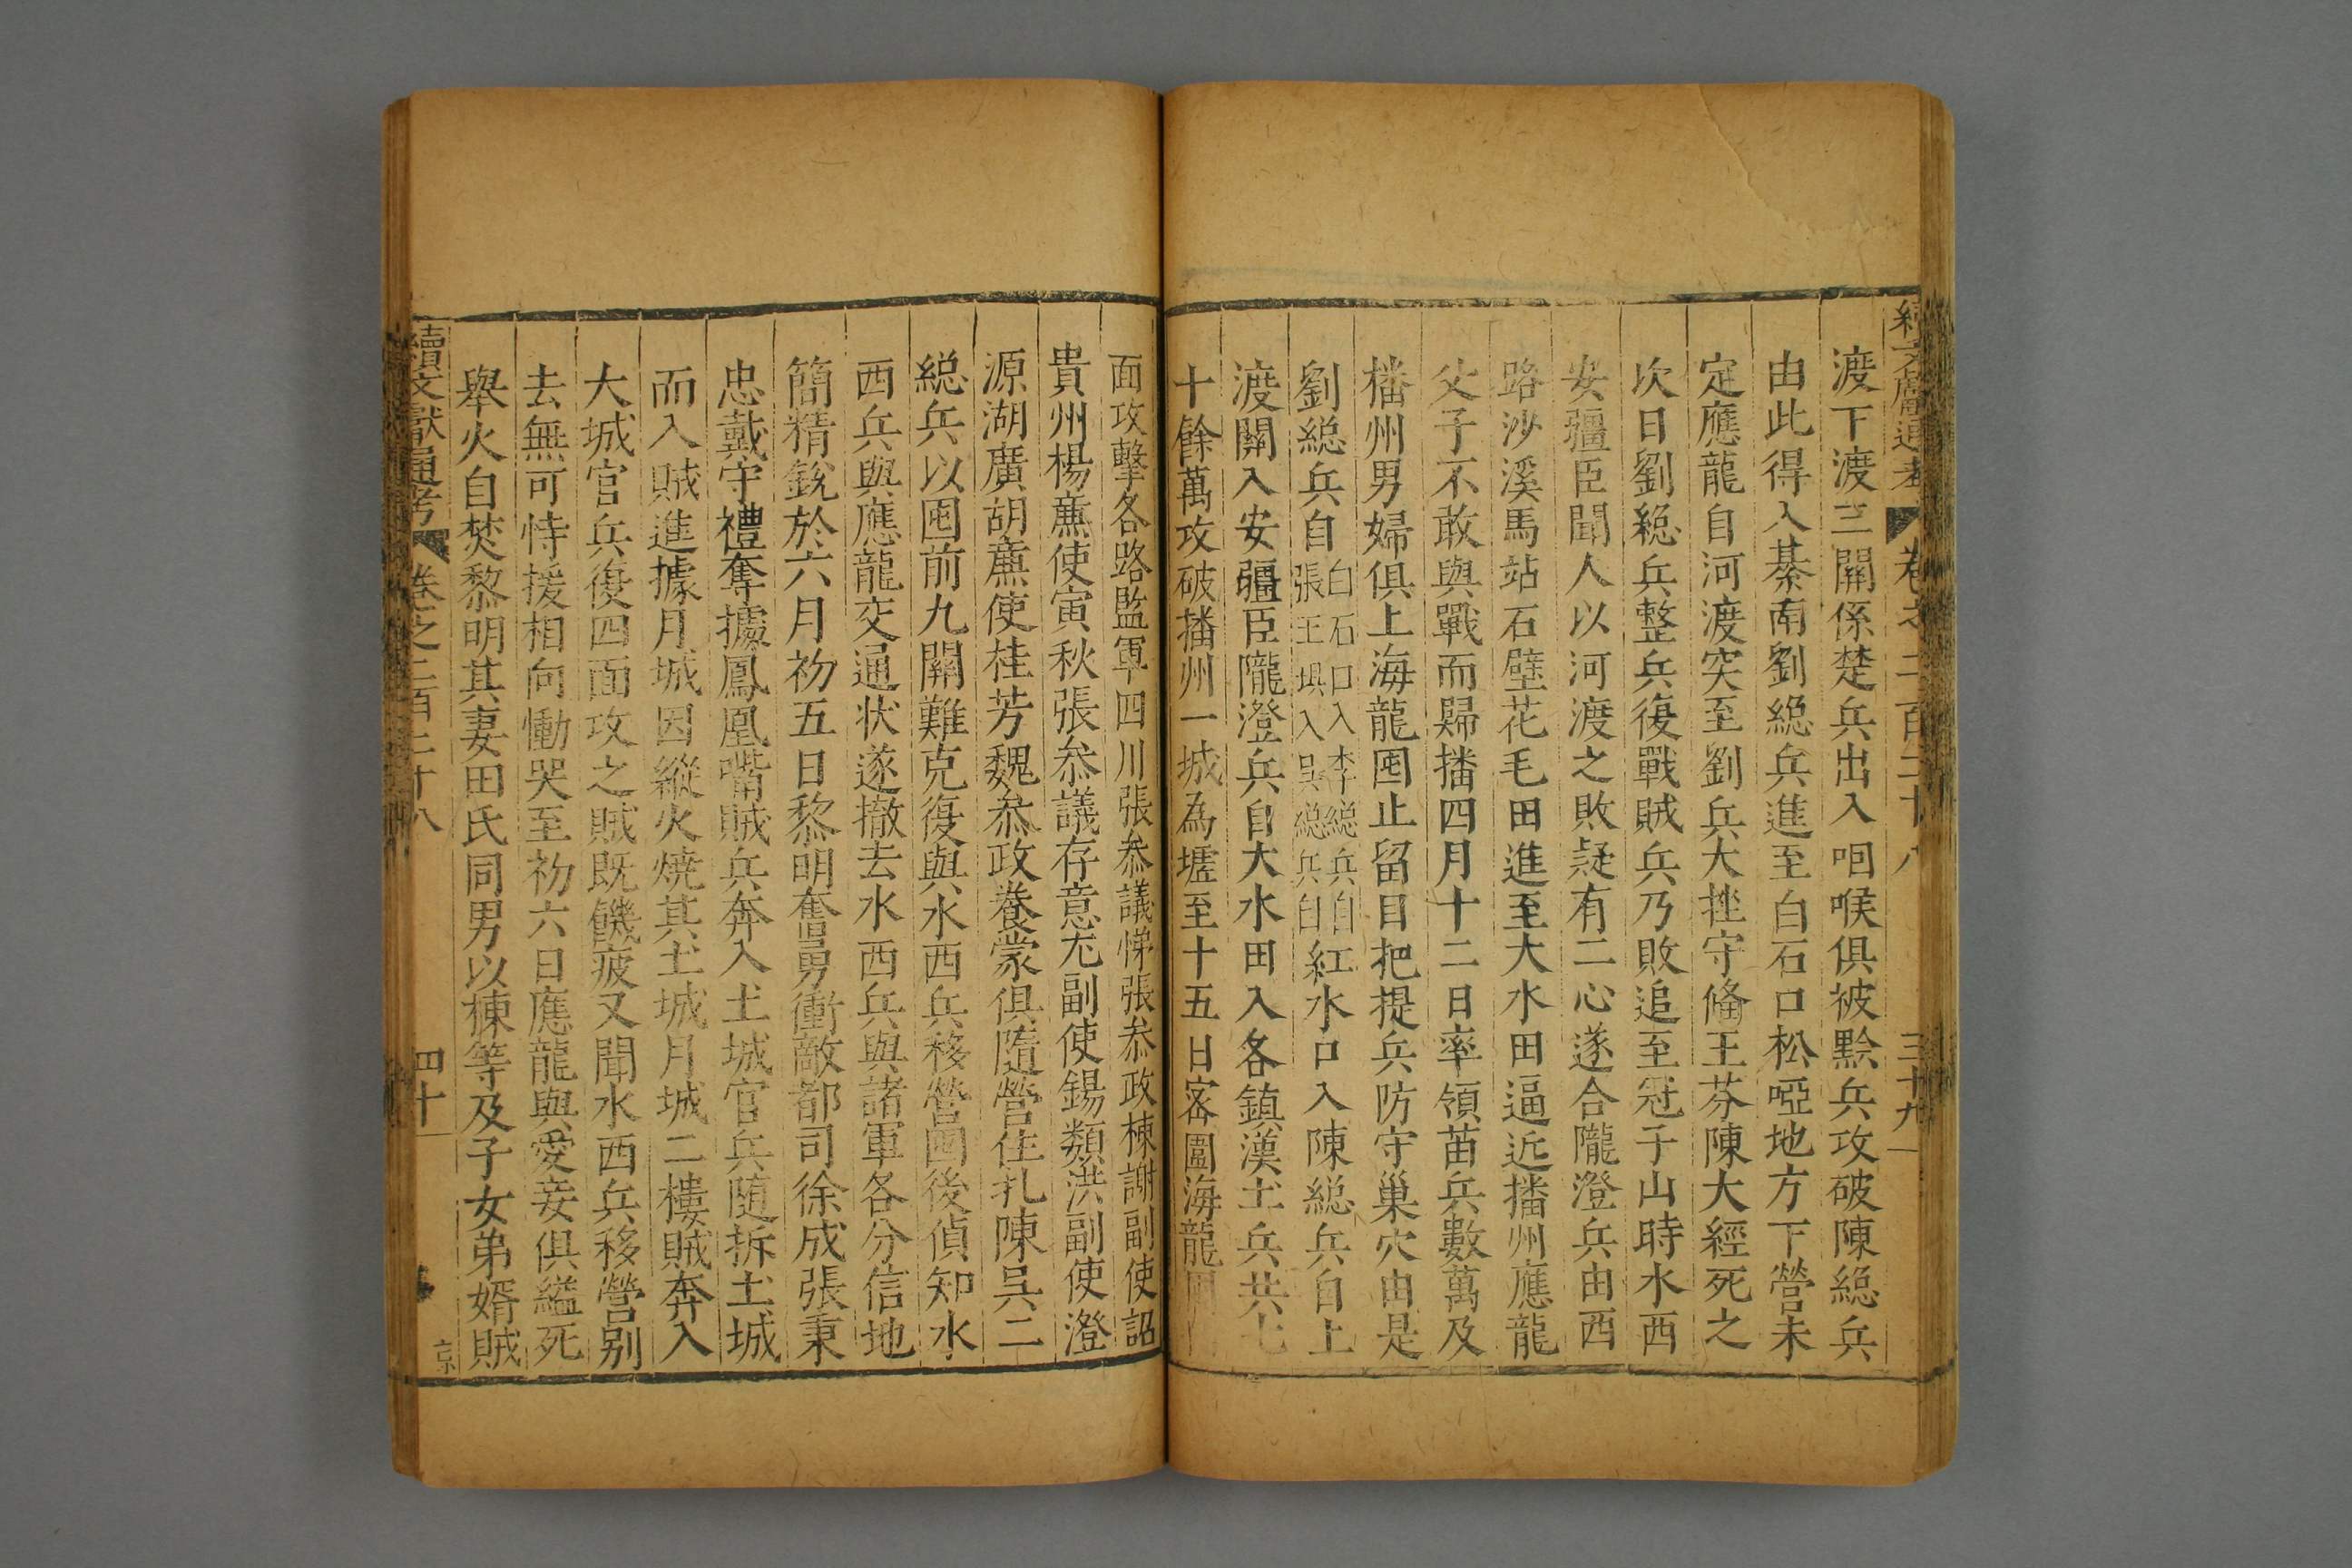 續文獻通考 卷之二百三十八 三十九
渡下渡三關係楚兵出入咽喉俱被黔兵攻破陳緫兵
由此得入綦南劉緫兵進至白石口松啞地方下營未
定應龍自河渡突至劉兵大挫守俻王芬陳大經死之
次日劉緫兵整兵復戰賊兵乃敗追至冠子山時水西
安疆臣聞人以河渡之敗疑有二心遂合隴澄兵由西
路沙溪馬站石壁花毛田進至大水田逼近播州應龍
父子不敢與戰而歸播四月十二日率領苗兵數萬及
播州男婦俱上海龍囤止留目把提兵防守巢穴由是
劉緫兵自白石口入李緫兵自張王埧入吳緫兵自紅水口入陳緫兵自上
渡關入安疆臣隴澄兵自大水田入各鎮漢土兵共七
十餘萬攻破播州一城為墟至十五日客圍海龍囤
面攻擊各路監軍四川張叅議悌張叅政棟謝副使詔
貴州楊亷使寅秋張叅議存意尤副使錫類洪副使澄
源湖廣胡亷使桂芳魏叅政養蒙俱隨營住扎陳吳二
緫兵以囤前九關難克復與水西兵移營囤後偵知水
西兵與應龍交通状遂撤去水西兵與諸軍各分信地
簡精銳於六月初五日黎明奮勇衝敵都司徐成張秉
忠戴守禮奪據鳳凰嘴賊兵奔入土城官兵随拆土城
而入賊進據月城因縱火燒其土城月城二樓賊奔入
大城官兵復四面攻之賊既饑疲又聞水西兵移營别
去無可恃援相向慟哭至初六日應龍與愛妾俱縊死
舉火自焚黎明其妻田氏同男以棟等及子女弟婿賊
續文獻通考 卷之二百三十八 四十 京